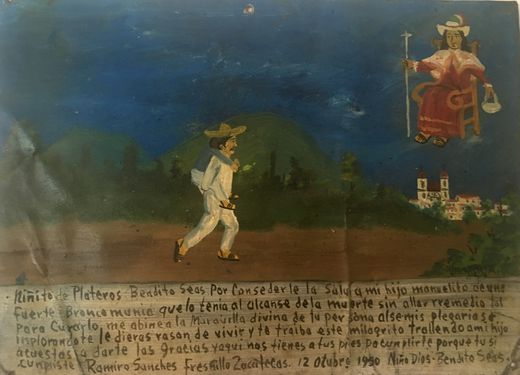 Niñito de Plateros Bendito Seas Por Consederle la Salud a mi hijo manuelito de una
Fuerte Broncomunia que lo tenia al alcanse dela muerte sin allar rremedio tal
para Curarlo, me abine a la Maravilla divina de tu persona alsemis plegarias e
inplorandote le dieras rason de vivir y te traiba este milagrito trallendo a mi hijo
acuestas a darte las Gracias yaqui nos tienes a tus pies po cunplirte porque tu si
cunpliste Ramiro Sanches Fresnillo Zacatecas. 12 Otubre 1950 Niño Dios. Bendito Seas.